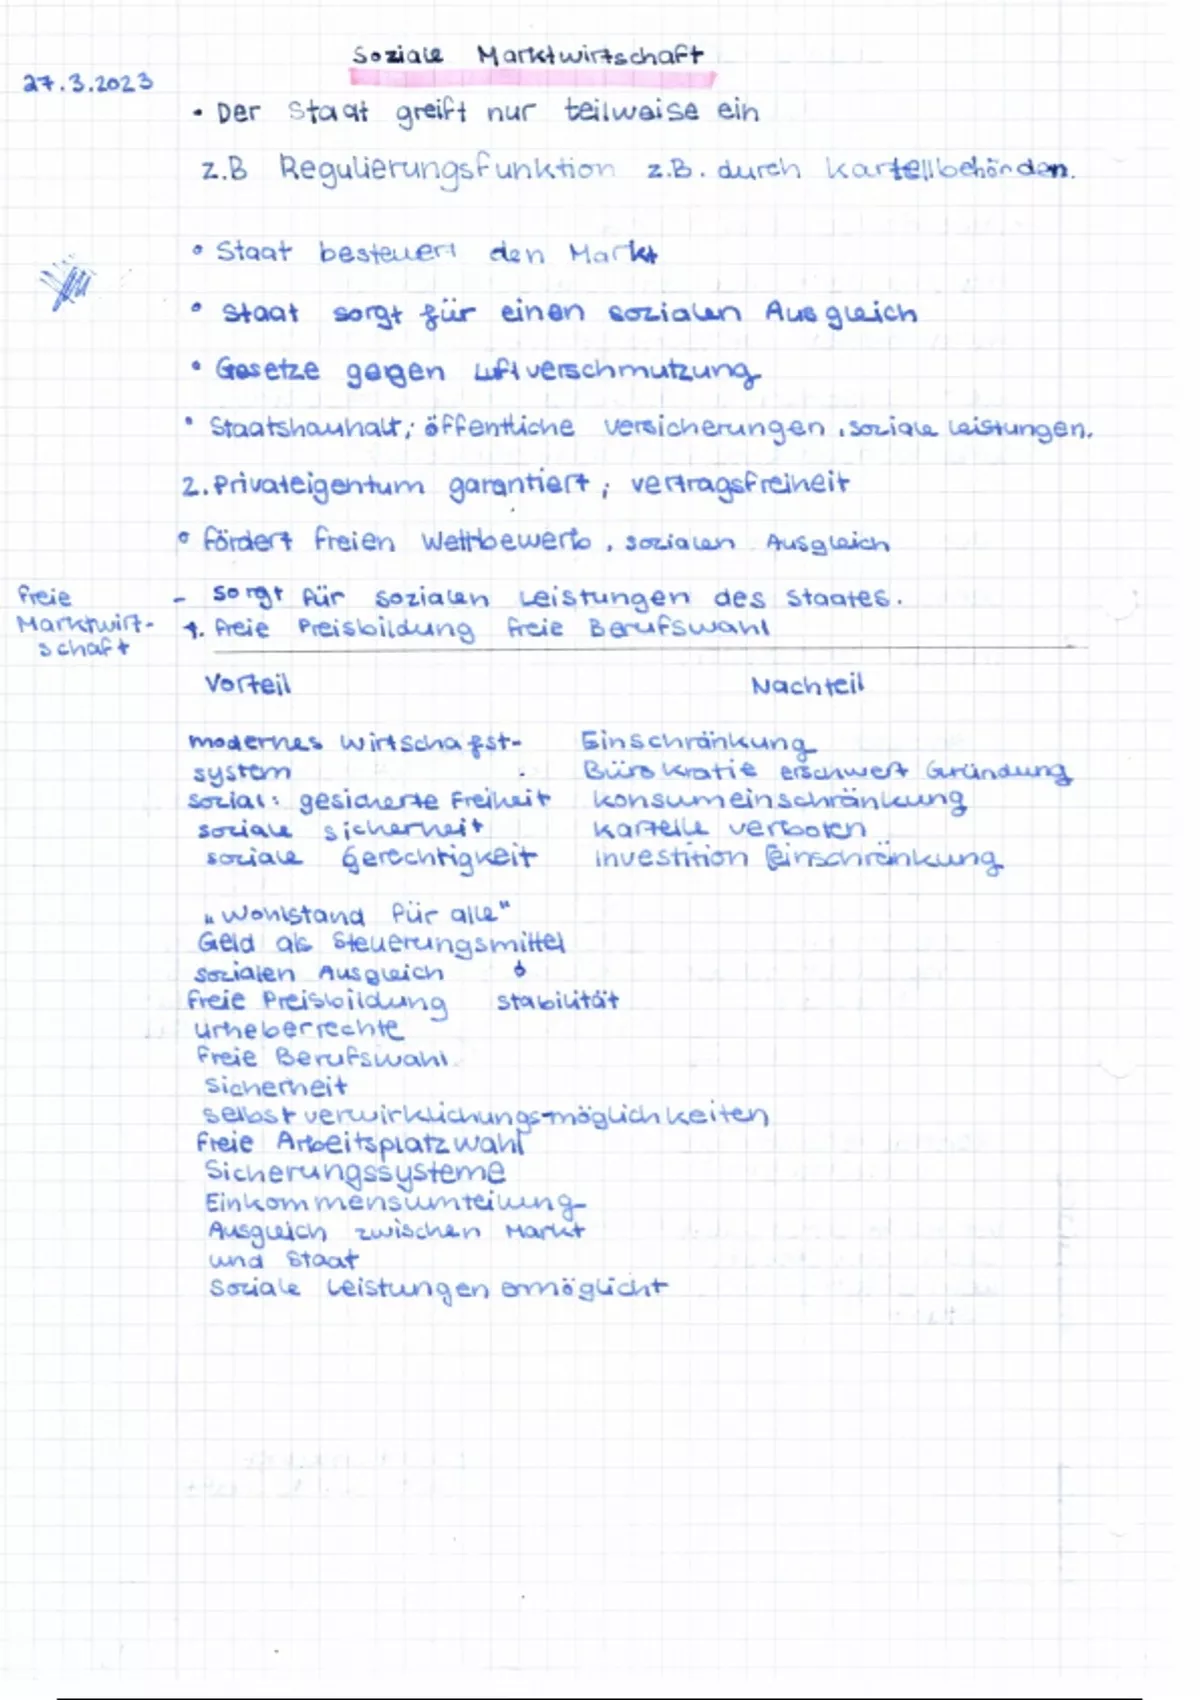 Soziale Marktwirtschaft
27.3.2023
• Der Staat greift nur teilweise ein
z.B Regulierungsfunktion z.B. durch Kartellbehörden.
• Staat besteuert den Markt
• Staat sorgt für einen sozialen Ausgleich
• Gesetze gegen Luftverschmutzung
• Staatshauhalt; öffentliche versicherungen, soziale Leistungen.
2. Privateigentum garantiert; vertragsfreiheit
• fördert freien Wettbewerb, sozialen Ausgleich
- sorgt für sozialen Leistungen des Staates.
freie
Marktwirt-
schaft
1. freie Preisbildung freie Berufswahl
Vorteil Nachteil
modernes Wirtschafst- Einschränkung
system Bürokratie erschwert Gründung
sozial: gesicherte Freiheit konsumeinschränkung
soziale sicherheit kartelle verboten
soziale Gerechtigkeit investition Einschränkung
"Wohlstand für alle"
Geld als Steuerungsmittel
sozialen Ausgleich
freie Preisbildung stabilität
urheberrechte
freie Berufswahl.
Sicherheit
selbstverwirklichungs-möglichkeiten
freie Arbeitsplatzwahl
Sicherungssysteme
Einkommensumteilung
Ausgleich zwischen Markt
und Staat
Soziale Leistungen ermöglicht